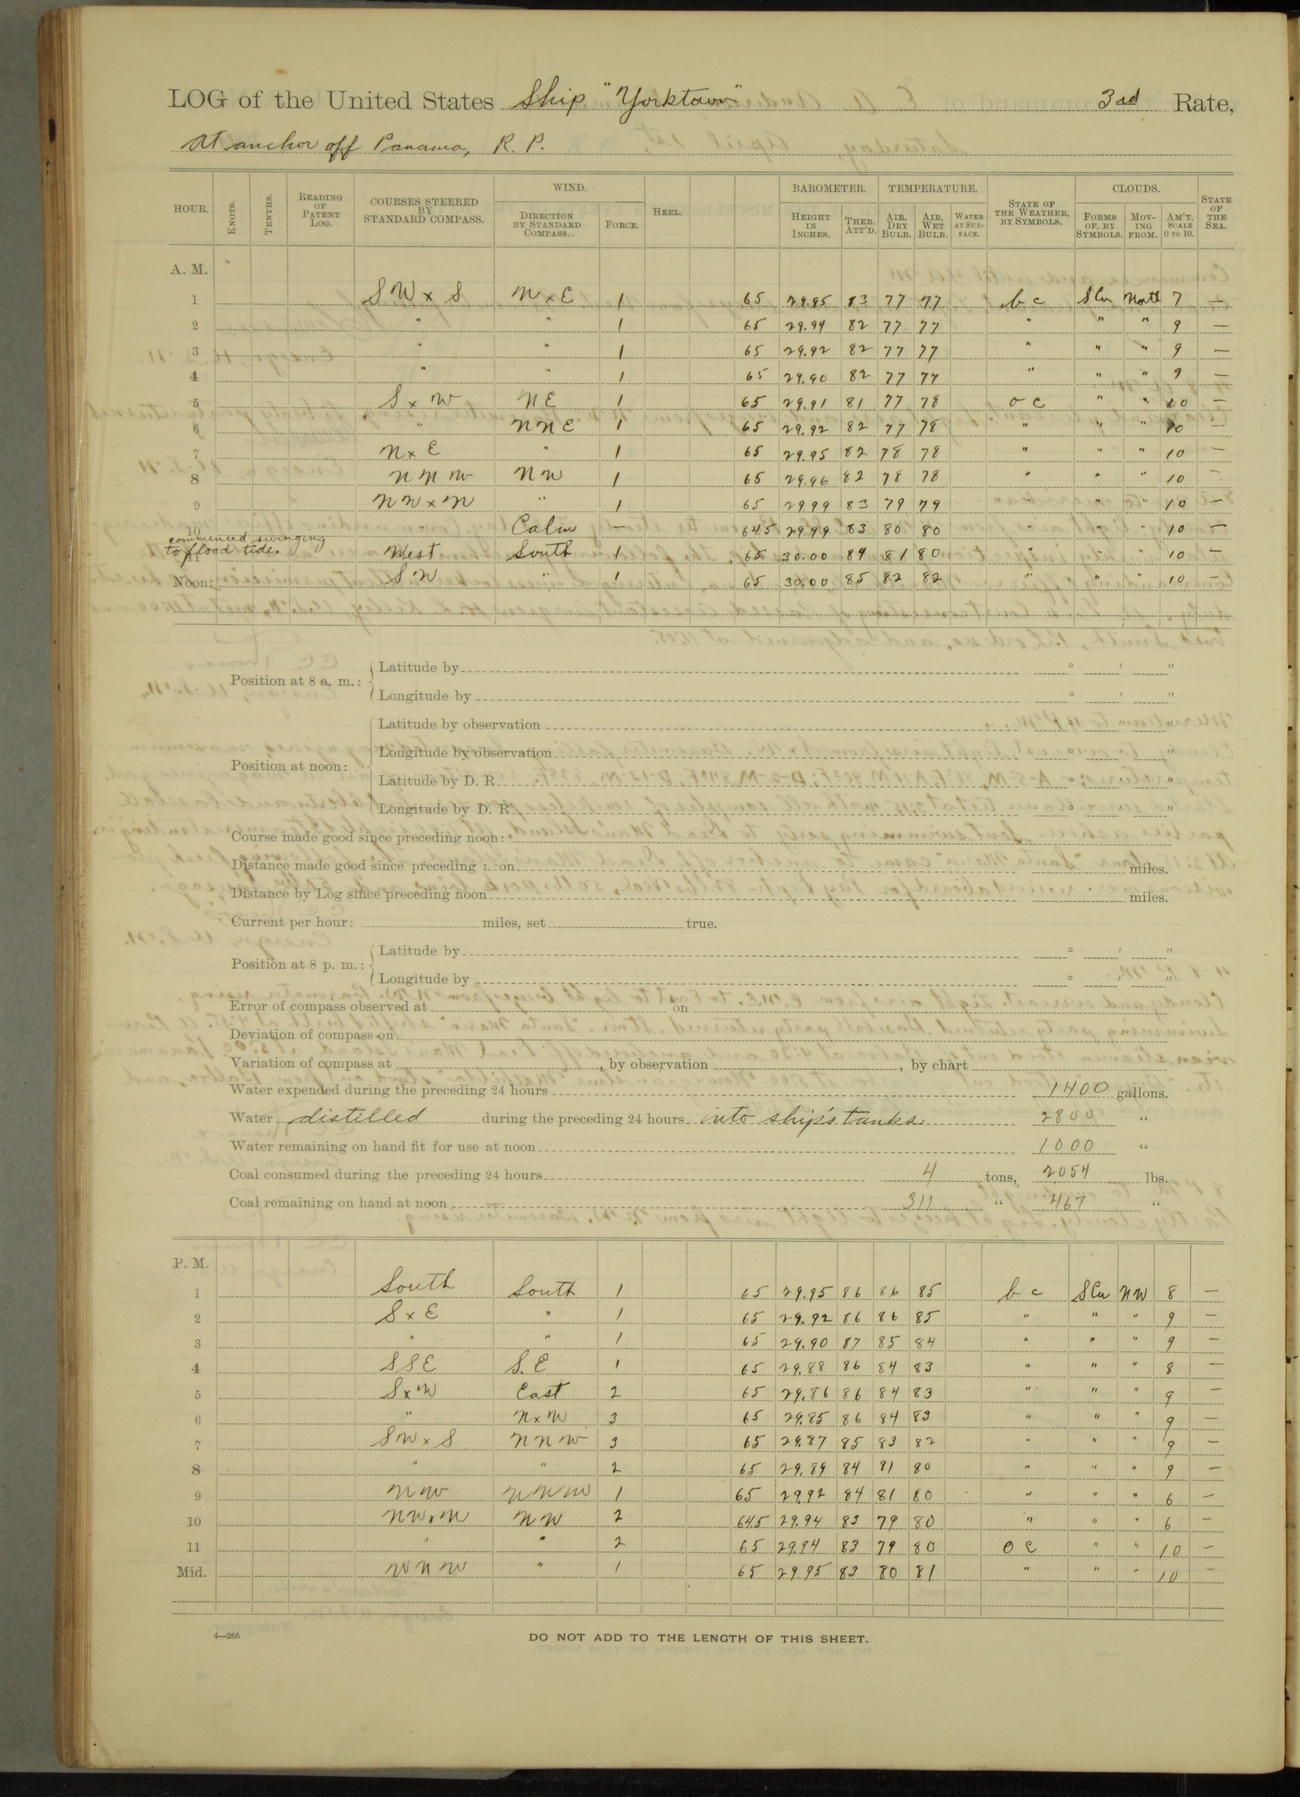 LOG of the United States Ship "Yorktown" 3rd Rate,
At anchor off Panama, R. P.
HOUR. KNOTS. TENTHS. READING OF PATENT LOG. COURSES STEERED BY STANDARD COMPASS. WIND. DIRECTION BY STANDARD COMPASS. FORCE. HEEL. BAROMETER. HEIGHT IN INCHES. THER. ATT'D. TEMPERATURE. AIR, DRY BULB. AIR, WET BULB. WATER AT SURFACE. STATE OF THE WEATHER, BY SYMBOLS. CLOUDS. FORMS OF, BY SYMBOLS. MOVING FROM. AM'T. SCALE 0 TO 10. STATE OF THE SEA.
A. M.
1 SW x S N x E 1 65 29.95 83 77 77 b c SCu North 7 —
2 " " 1 65 29.94 82 77 77 " " " 9 —
3 " " 1 65 29.92 82 77 77 " " " 9 —
4 " " 1 65 29.90 82 77 77 " " " 9 —
5 S x W NE 1 65 29.91 81 77 78 o c " " 10 —
6 " NNE 1 65 29.92 82 77 78 " " " 10 —
7 N x E " 1 65 29.95 82 78 78 " " " 10 —
8 NNW NW 1 65 29.96 82 78 78 " " " 10 —
9 NW x N " 1 65 29.99 83 79 79 " " " 10 —
10 " Calm — 64.5 29.99 83 80 80 " " " 10 —
commenced swinging
to flood tide.
11 West South 1 65 30.00 84 81 80 " " " 10 —
Noon: SW " 1 65 30.00 85 82 82 " " " 10 —
Position at 8 a. m.: Latitude by ° ' "
Longitude by ° ' "
Position at noon: Latitude by observation ° ' "
Longitude by observation ° ' "
Latitude by D. R. ° ' "
Longitude by D. R. ° ' "
Course made good since preceding noon:
Distance made good since preceding noon miles.
Distance by Log since preceding noon miles.
Current per hour: miles, set true.
Position at 8 p. m.: Latitude by ° ' "
Longitude by ° ' "
Error of compass observed at on
Deviation of compass on
Variation of compass at , by observation , by chart
Water expended during the preceding 24 hours 1400 gallons.
Water distilled during the preceding 24 hours into ship's tanks 2800 "
Water remaining on hand fit for use at noon 1000 "
Coal consumed during the preceding 24 hours 4 tons, 2054 lbs.
Coal remaining on hand at noon 311 " 467 "
P. M.
1 South South 1 65 29.95 86 86 85 b c SCu NW 8 —
2 S x E " 1 65 29.92 86 86 85 " " " 9 —
3 " " 1 65 29.90 87 85 84 " " " 9 —
4 SSE S.E 1 65 29.88 86 84 83 " " " 8 —
5 S x W East 2 65 29.86 86 84 83 " " " 9 —
6 " N x W 3 65 29.85 86 84 83 " " " 9 —
7 SW x S NNW 3 65 29.87 85 83 82 " " " 9 —
8 " " 2 65 29.89 84 81 80 " " " 9 —
9 NW NNW 1 65 29.92 84 81 80 " " " 6 —
10 NW x N NW 2 64.5 29.94 83 79 80 " " " 6 —
11 " " 2 65 29.94 83 79 80 o c " " 10 —
Mid. WNW " 1 65 29.95 83 80 81 " " " 10 —
4—265
DO NOT ADD TO THE LENGTH OF THIS SHEET.